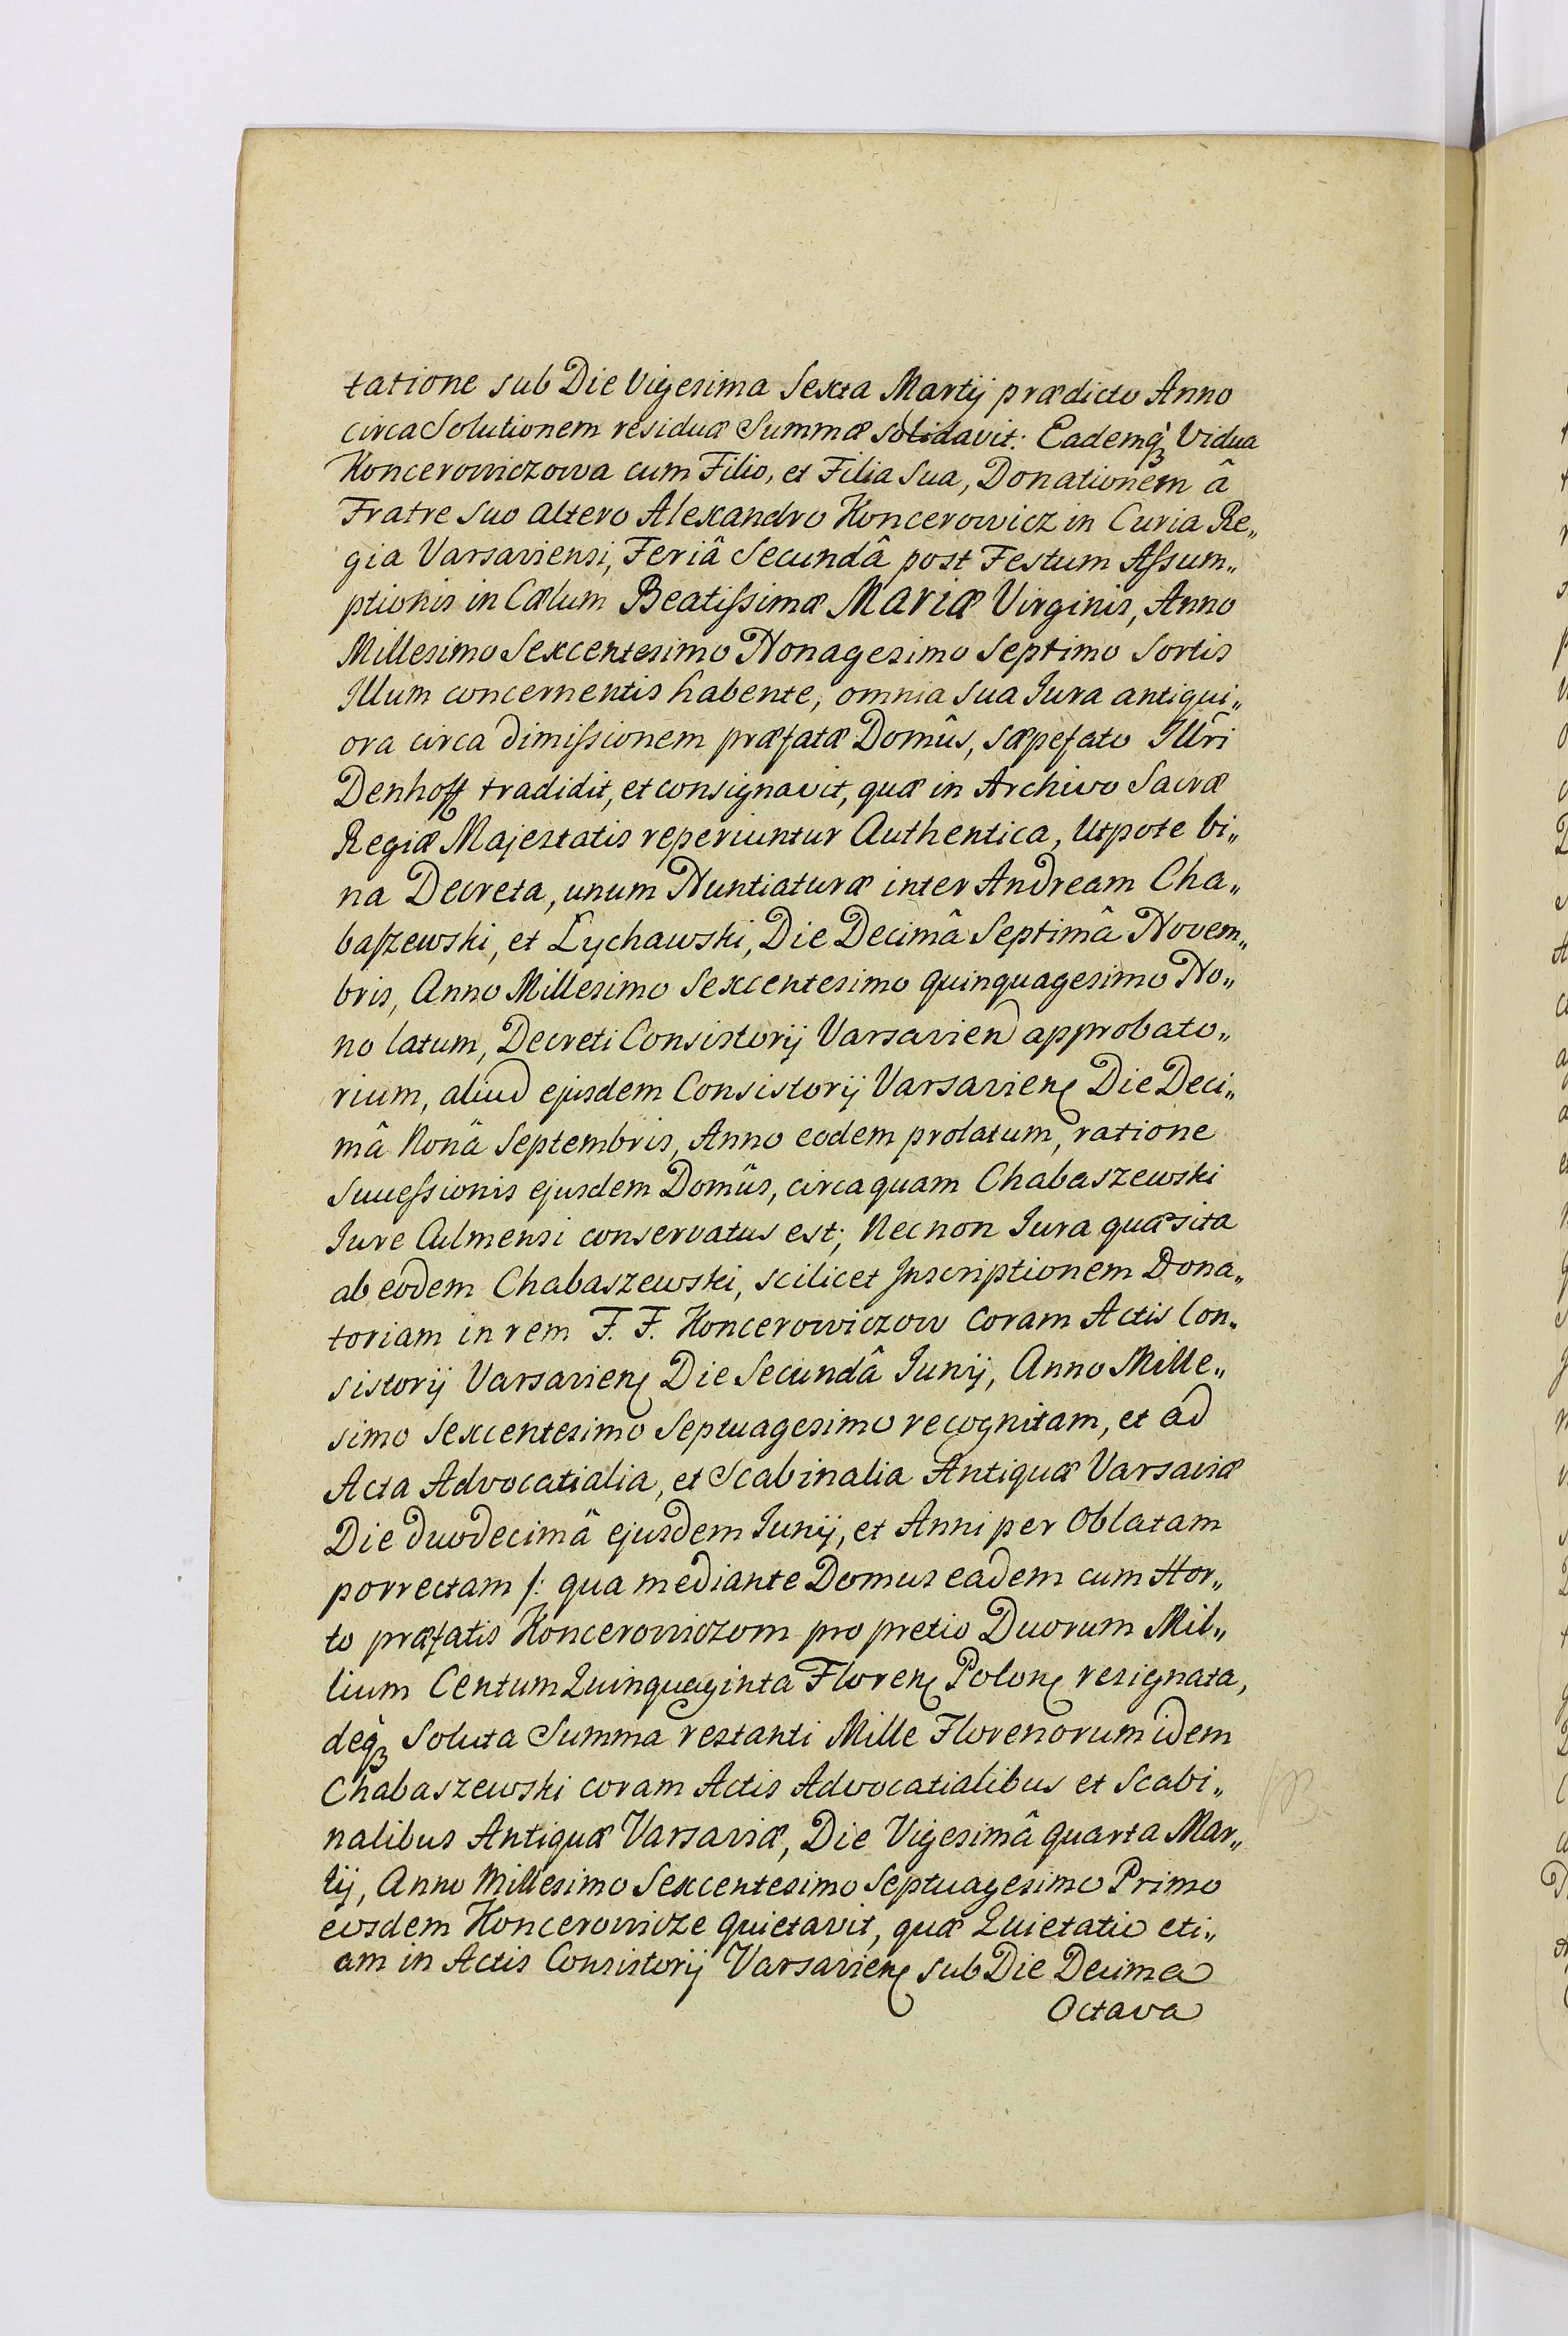 tatione sub Die Vigesima Sexta Martij prædicto Anno
circa Solutionem residuæ Summæ solidavit: Eademq́₃ Vidua
Koncerowiczowa cum Filio, et Filia Sua, Donationem â
Fratre Suo altero Alexandro Koncerowicz in Curia Re„
gia Varsaviensi, Feriâ Secundâ post Festum Aſsum„
ptionis in Cælum Beatiſsimæ MARIÆ Virginis, Anno
Millesimo Sexcentesimo Nonagesimo Septimo Sortis
Illum concernentis habente, omnia Sua Jura antiqui„
ora circa dimiſsionem præfatæ Domûs, sæpefato Illri
Denhoff tradidit, et consignavit, quæ in Archivo Sacræ
Regiæ Majestatis reperiuntur Authentica, Utpote bi„
na Decreta, unum Nuntiaturæ inter Andream Cha„
baſzewski, et Lychawski, Die Decimâ Septimâ Novem„
bris, Anno Millesimo Sexcentesimo quinquagesimo No„
no latum, Decreti Consistorij Varsavien approbato„
rium, aliud ejusdem Consistorij Varsavien Die Deci„
mâ Nonâ Septembris, Anno eodem prolatum, ratione
Succeſsionis ejusdem Domûs, circa quam Chabaszewski
Jure Culmensi conservatus est; Nec non Jura quæsita
ab eodem Chabaszewski, scilicet Inscriptionem Dona„
toriam in rem F. F. Koncerowiczow coram Actis Con„
sistorij Varsavien Die Secundâ Junij, Anno Mille„
simo Sexcentesimo Septuagesimo recognitam, et ad
Acta Advocatialia, et Scabinalia Antiquæ Varsaviæ
Die duodecimâ ejusdem Junij, et Anni per Oblatam
porrectam /: qua mediante Domus eadem cum Hor„
to præfatis Koncerowiczom pro pretio Duorum Mil„
lium Centum Quinquaginta Floren Polon resignata,
deq́₃ Soluta Summa restanti Mille Florenorum idem
Chabaszewski coram Actis Advocatialibus et Scabi„
nalibus Antiquæ Varsaviæ, Die Vigesimâ quarta Mar„
tij, Anno Millesimo Sexcentesimo Septuagesimo Primo
eosdem Koncerowicze quietavit, quæ Quietatio eti„
am in Actis Consistorij Varsavien sub Die Decima
Octava